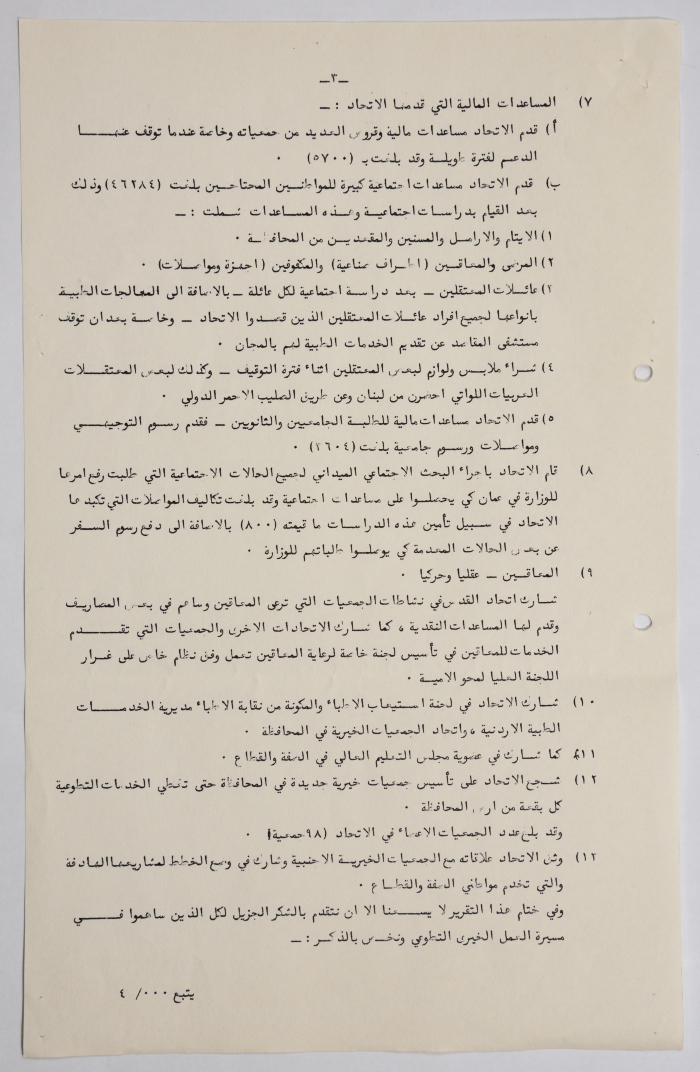 ــ٣ــ
٧) المساعدات المالية التي قدمها الاتحاد : ــ
أ) قدم الاتحاد مساعدات مالية وقروض العديد من جمعياته وخاصة عندما توقف عنهـــا
الدعم لفترة طويلـة وقد بلغت بـ (٥٧٠٠) ٠
ب) قدم الاتحاد مساعدات اجتماعية كبيرة للمواطنـين المحتاجـين بلغت (٤٦٢٨٤) وذلك
بعد القيام بدراسات اجتماعيـة وهـذه المساعـدات شملت : ــ
١) الايتام والارامـل والمسنين والمقعديـن من المحافظـة ٠
٢) المرضى والمعاقـين (اطـراف صناعية) والمكفوفين (اجهزة ومواصـلات) ٠
٣) عائـلات المعتقلين ــ بعـد دراسـة اجتماعية لكل عائلة ــ بالاضافة الى المعالجات الطبية
بانواعها لجميع افراد عائـلات المعتقلين الذين قصدوا الاتحاد ــ وخاصة بعد ان توقف
مستشفى المقاصد عن تقديم الخدمات الطبية لهم بالمجان ٠
٤) شـراء ملابس ولوازم لبعض المعتقلين اثناء فترة التوقيف ــ وكذلك لبعض المعتقـلات
العربيات اللواتي احضرن من لبنان وعن طريق الصليب الاحمر الدولي ٠
٥) قدم الاتحاد مساعدات مالية للطلبـة الجامعيين والثانويين ــ فقدم رسوم التوجيهـي
ومواصـلات ورسوم جامعية بلغت (٣٦٠٤) ٠
٨) قام الاتحاد باجراء البحث الاجتماعي الميداني لجميع الحالات الاجتماعية التي طلبت رفع امرها
للوزارة في عمان كي يحصلوا على مساعدات اجتماعية وقد بلغت تكاليف المواصلات التي تكبدها
الاتحاد في سبيل تأمين هذه الدراسات ما قيمته (٨٠٠) بالاضافة الى دفع رسوم السفر
عن بعض الحالات المعدمة كي يوصلوا طلباتهم للوزارة ٠
٩) المعاقـين ــ عقليا وحركيا ٠
شـارك اتحاد القدس في نشاطات الجمعيات التي ترعى المعاقين وساهم في بعض المصاريف
وقدم لها المساعدات النقدية ، كما شارك الاتحادات الاخرى والجمعيات التي تقـــدم
الخدمات للمعاقين في تأسيس لجنة خاصة لرعاية المعاقين تعمل وفق نظام خاص على غـرار
اللجنة العليا لمحو الامية ٠
١٠) شـارك الاتحاد في لجنة استيعاب الاطباء والمكونة من نقابة الاطباء مديرية الخدمــات
الطبية الاردنية ، واتحاد الجمعيات الخيرية في المحافظة ٠
١١) كما شـارك في عضوية مجلس التعليم العالي في الضفة والقطاع ٠
١٢) شـجع الاتحاد على تأسيس جمعيات خيرية جديدة في المحافظة حتى تغطي الخدمات التطوعية
كل بقعة من ارض المحافظة ٠
وقد بلغ عدد الجمعيات الاعضاء في الاتحاد (٩٨جمعية) ٠
١٣) وثق الاتحاد علاقاته مع الجمعيات الخيريـة الاجنبية وشارك في وضع الخطط لمشاريعها الهادفة
والتي تخدم مواطني الضفة والقطـاع ٠
وفي ختام هذا التقرير لا يسـعنا الا ان نتقدم بالشكر الجزيل لكل الذين ساهموا فـــي
مسيرة العمل الخيرى التطوعي ونخـص بالذكـر : ــ
يتبع ٠٠٠/ ٤